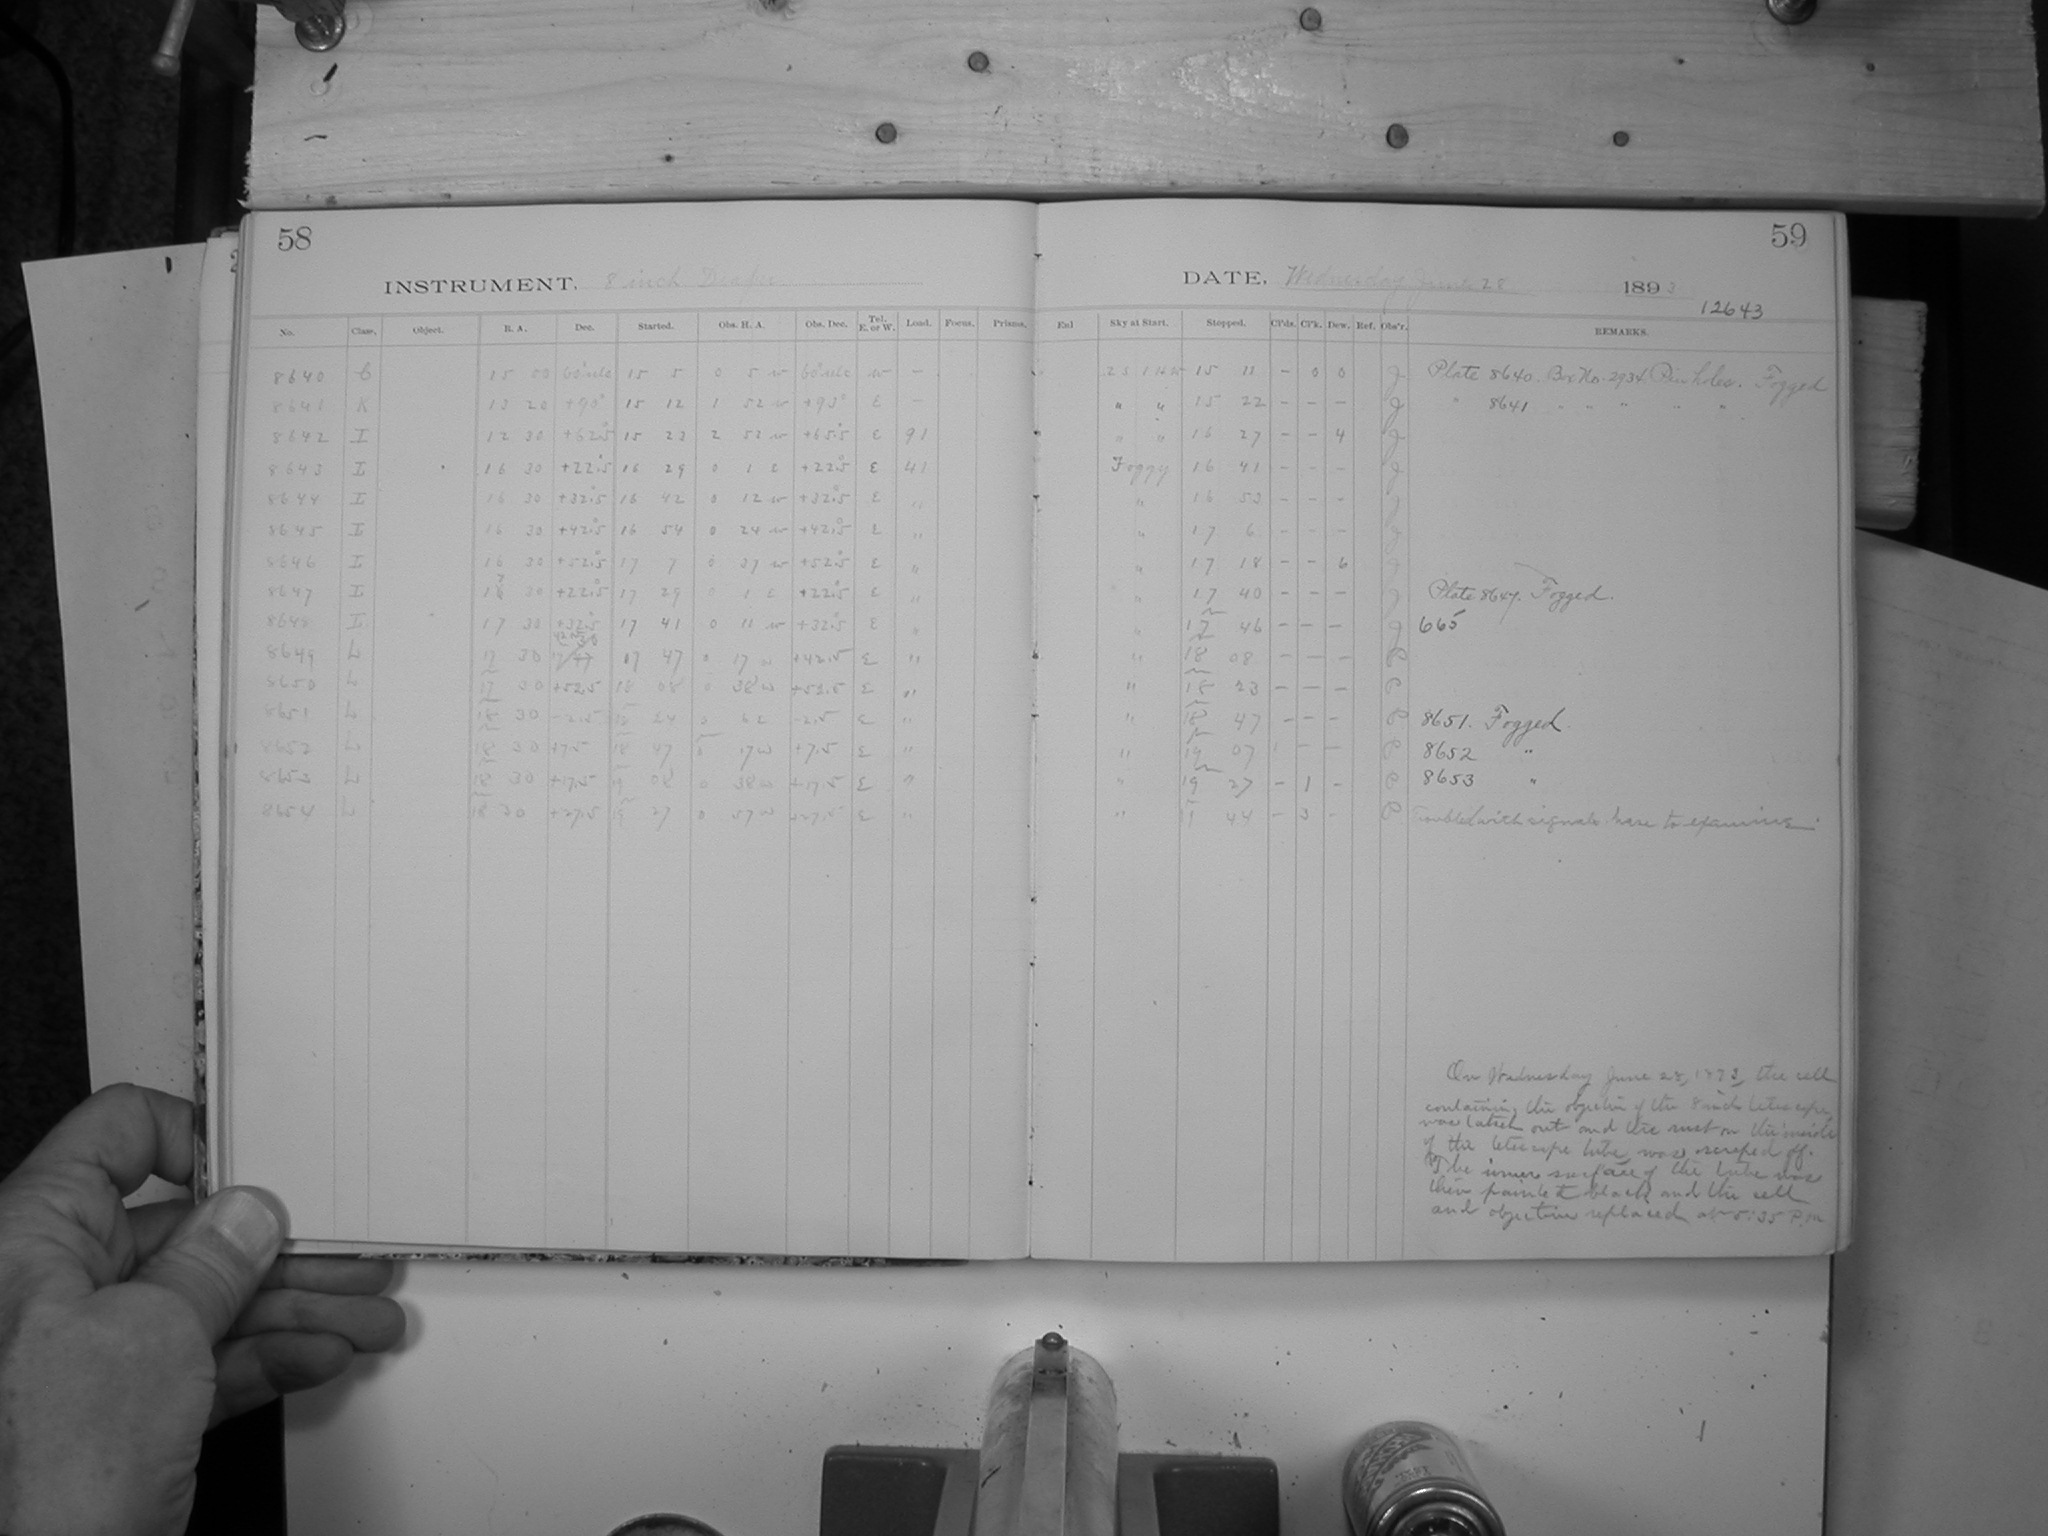 58
59
INSTRUMENT. 8 inch Draper
DATE, Wednesday June 28 1893
12643
No. Class. Object. R. A. Dec. Started. Obs. H. A. Obs. Dec. Tel. E. or W. Load. Focus. Prisms. Enl Sky at Start. Stopped. Cl'ds. Cl'k. Dew. Ref. Obs'r. REMARKS.
8640 C 15 00 15 5 0 5 w w — 15 11 – 0 0 J Plate 8640. Box No. 2934. Pin holes. Fogged
8641 K 13 20 +90° 15 12 1 52 w +93° E — " " 15 22 – – – J " 8641 " " " " "
8642 I 12 30 +62.5 15 23 2 52 w +65.5 E 91 " " 16 27 – – 4 J
8643 I 16 30 +22.5 16 29 0 1 E +22.5 E 41 Foggy 16 41 – – – J
8644 I 16 30 +32.5 16 42 0 12 w +32.5 E " " 16 53 – – – J
8645 I 16 30 +42.5 16 54 0 24 w +42.5 E " " 17 6 – – – J
8646 I 16 30 +52.5 17 7 0 37 w +52.5 E " " 17 18 – – 6 J
8647 I 17 30 +22.5 17 29 0 1 E +22.5 E " " 17 40 – – – J Plate 8647. Fogged.
8648 L 17 30 +32.5 17 41 0 11 w +32.5 E " " 17 46 – – – J 665
8649 L 17 30 17 47 0 17 w +42.5 E " " 18 08 – – – P
8650 L 17 30 +52.5 18 08 0 38 w +52.5 E " " 18 23 – – – P
8651 L 18 30 -2.5 18 24 0 -2.5 E " " 18 47 – – – P 8651. Fogged.
8652 L 18 30 +7.5 18 47 0 17 w +7.5 E " " 19 07 1 – – P 8652 "
8653 L 18 30 +17.5 19 08 0 38 w +17.5 E " " 19 27 – 1 – P 8653 "
8654 L 18 30 +27.5 19 27 0 57 w +27.5 E " " 44 – 3 – P Trouble with signals have to examine.
On Wednesday June 28, 1893, the cell
containing the objective of the 8 inch telescope
was taken out and the rust on the inside
of the telescope tube was scraped off.
The inner surface of the tube was
then painted black and the cell
and objective replaced at 5:35 P.M